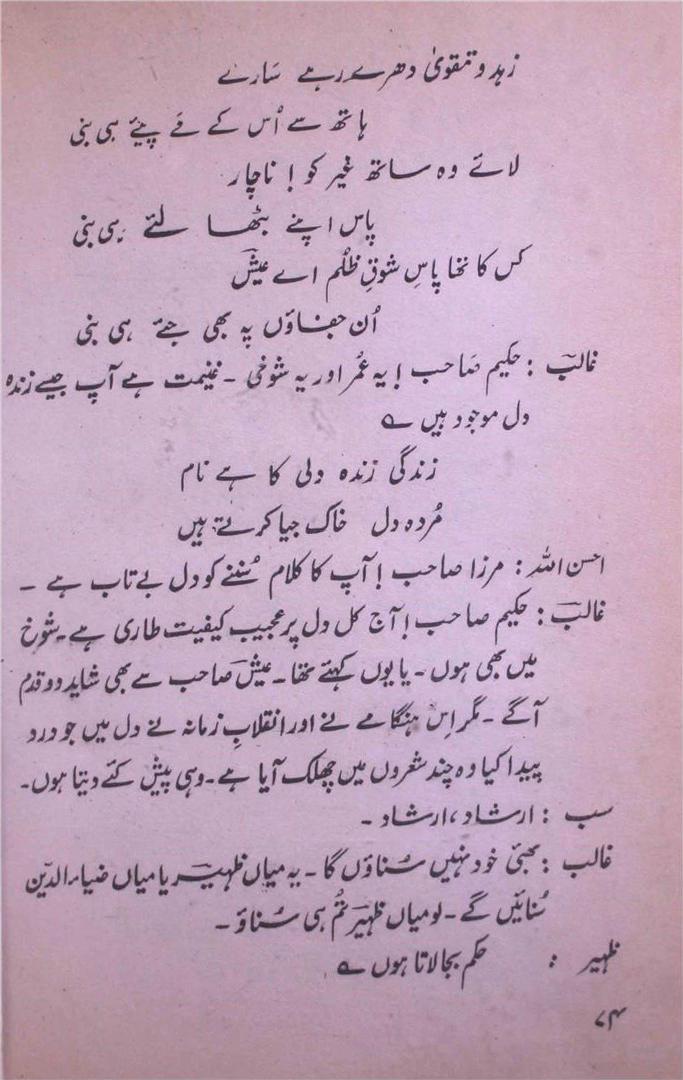 زہد و تقویٰ دھرے رہے سارے
ہاتھ سے اُس کے مَے پیئے ہی بنی
لائے وہ ساتھ غیر کو! ناچار
پاس اپنے بٹھا لئے ہی بنی
کس کا تھا پاسِ شوقِ ظلُم اے عیشؔ
اُن جفاؤں پہ بھی جئے ہی بنی
غالبؔ : حکیم صَاحب! یہ عُمر اور یہ شوخی ۔ غنیمت ہے آپ جیسے زندہ
دل موجود ہیں ؎
زندگی زندہ دلی کا ہے نام
مُردہ دل خاک جیا کرتے ہیں
احسن اللہ : مرزا صاحب! آپ کا کلام سُننے کو دل بے تاب ہے ۔
غالبؔ : حکیم صاحب! آج کل دل پر عجیب کیفیت طاری ہے ۔ شوخ
میں بھی ہوں ۔ یا یوں کہئے تھا ۔ عیشؔ صاحب سے بھی شاید دو قدم
آگے ۔ مگر اِس ہنگامے نے اور انقلابِ زمانہ نے دل میں جو درد
پیدا کیا وہ چند شعروں میں چھلک آیا ہے ۔ وہی پیش کئے دیتا ہوں ۔
سب : ارشاد، ارشاد ۔
غالب : بھئی خود نہیں سُناؤں گا ۔ یہ میاں ظہیرؔ یا میاں ضیاء الدّین
سُنائیں گے ۔ لو میاں ظہیرؔ تُم ہی سُناؤ ۔
ظہیر : حکم بجا لاتا ہوں ؎
۷۴